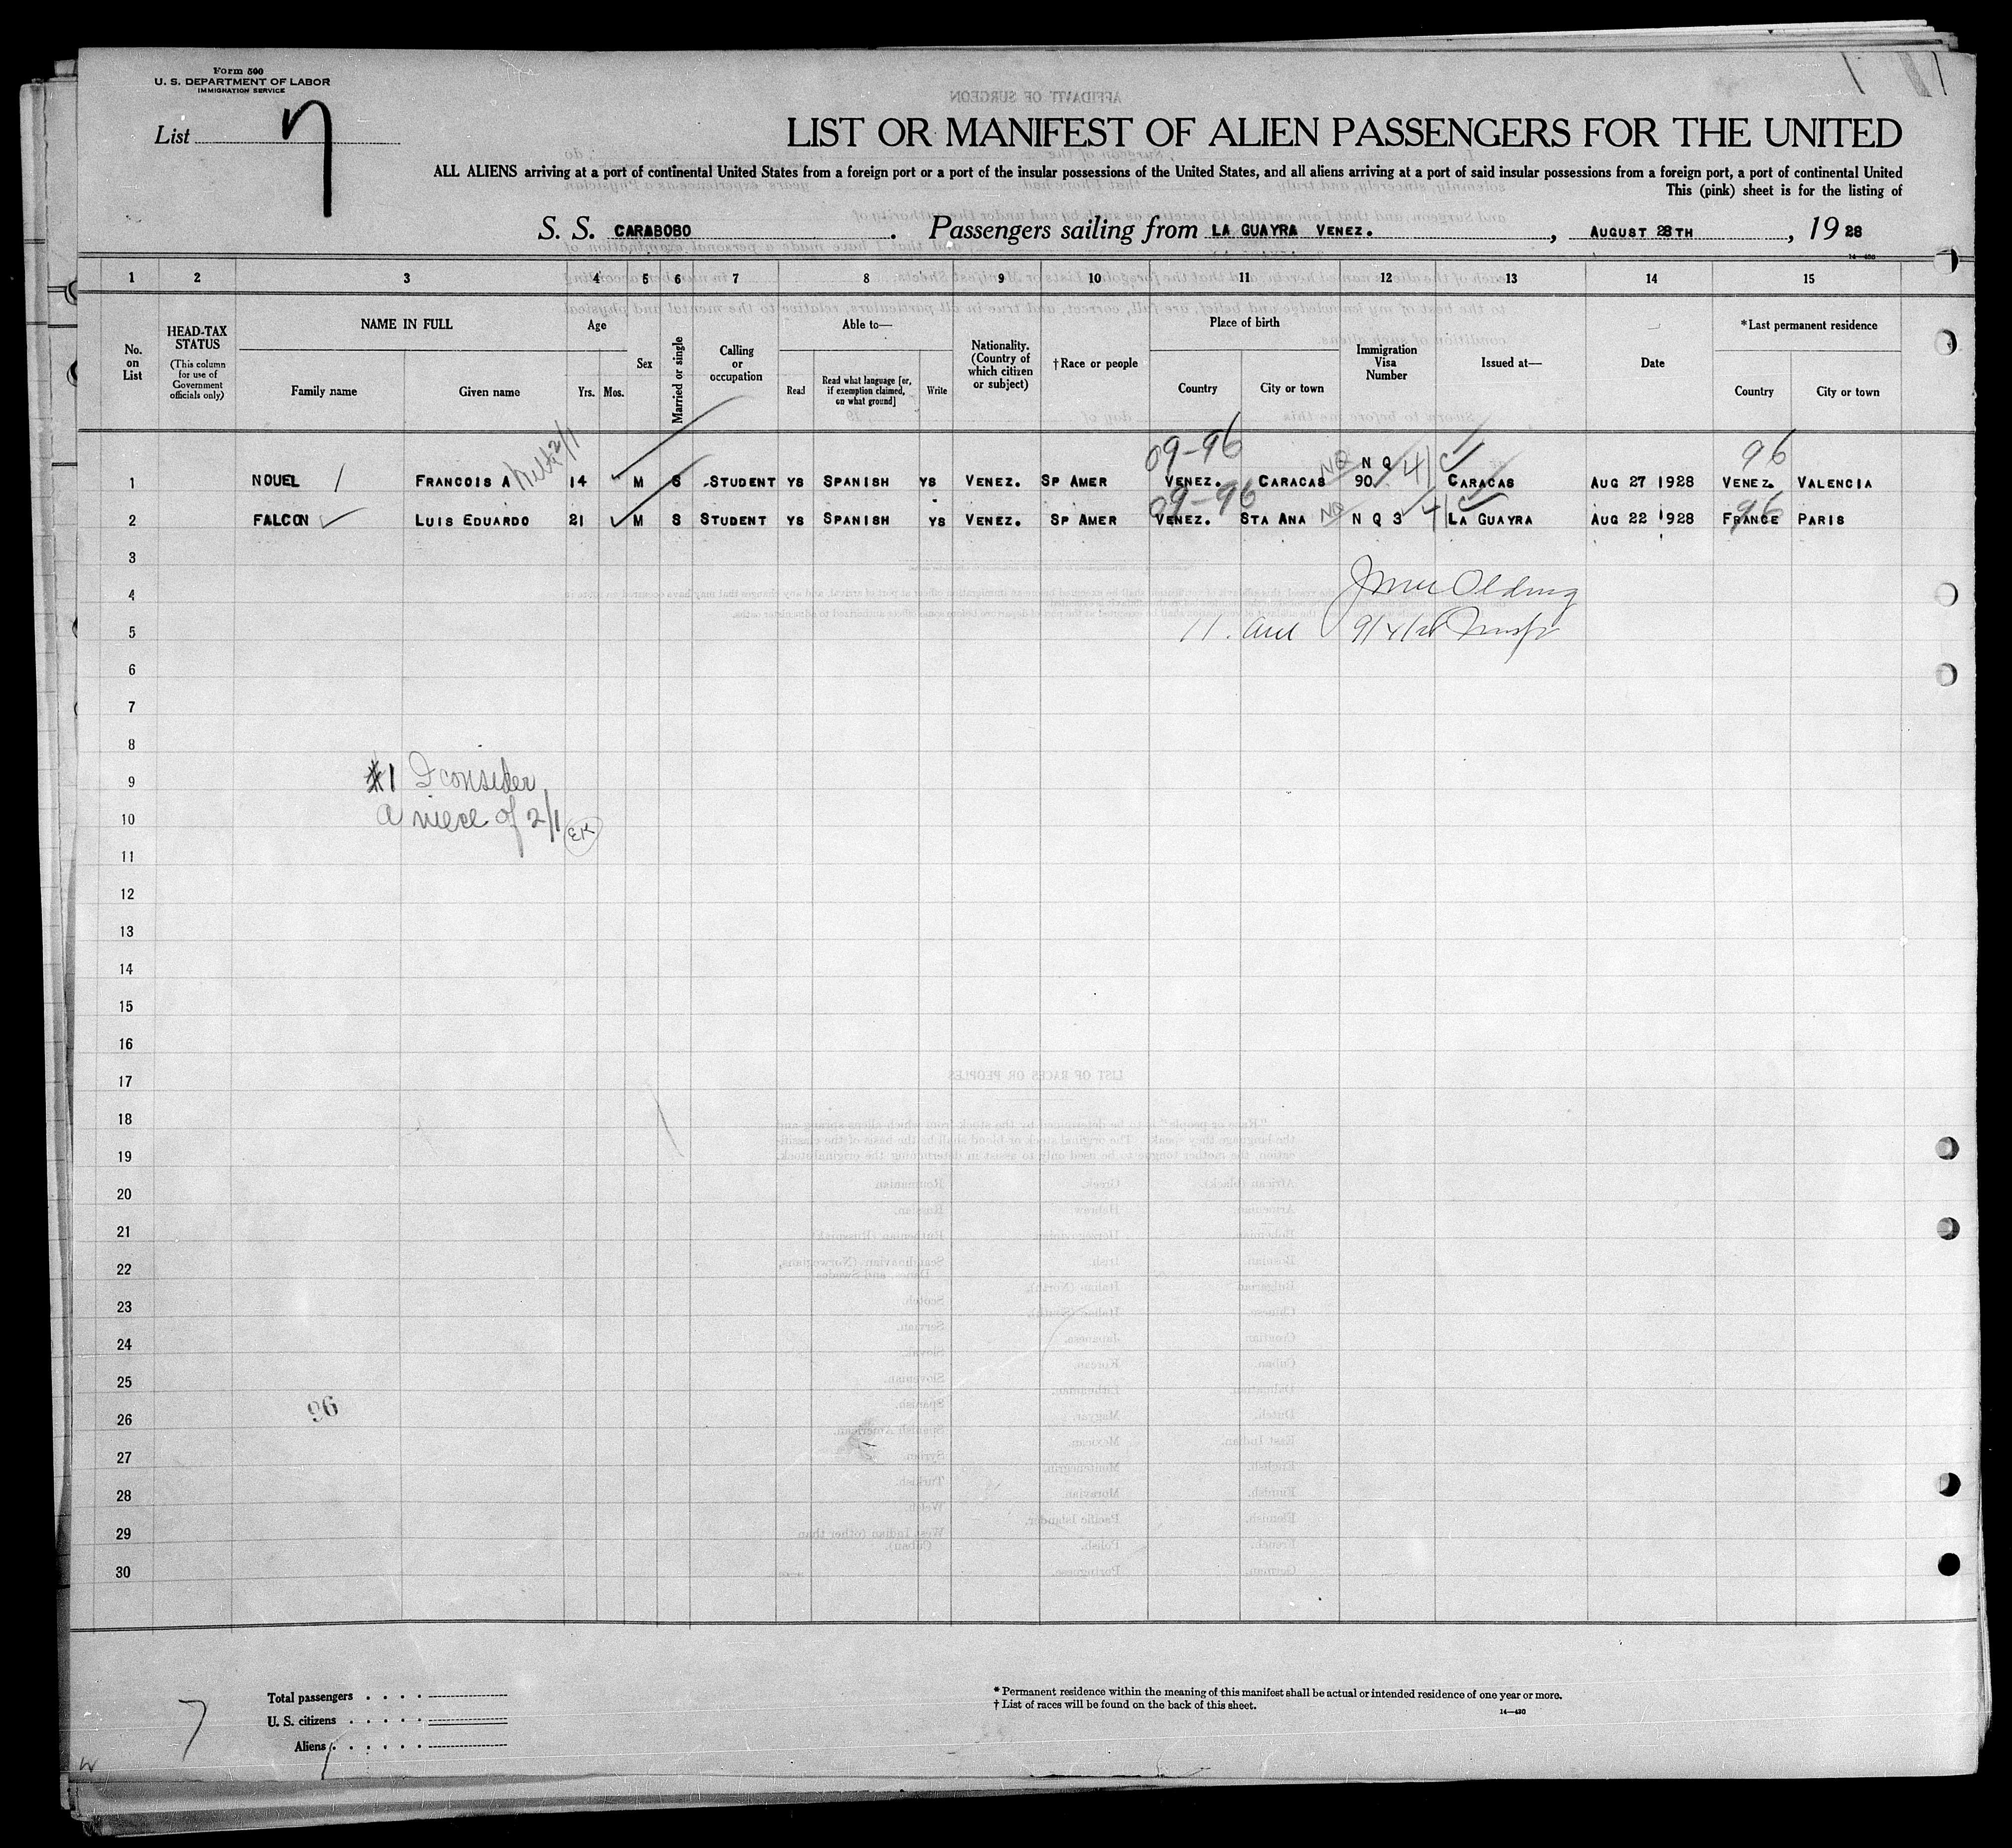 Form 500
U. S. DEPARTMENT OF LABOR
IMMIGRATION SERVICE
List 7
LIST OR MANIFEST OF ALIEN PASSENGERS FOR THE UNITED
ALL ALIENS arriving at a port of continental United States from a foreign port or a port of the insular possessions of the United States, and all aliens arriving at a port of said insular possessions from a foreign port, a port of continental United
This (pink) sheet is for the listing of
S. S. CARABOBO. Passengers sailing from LA GUAYRA VENEZ., AUGUST 28TH, 1928
1 2 3 4 5 6 7 8 9 10 11 12 13 14 15
No. on List
HEAD-TAX STATUS
(This column for use of Government officials only)
NAME IN FULL
Family name
Given name
Age
Yrs. Mos.
Sex
Married or single
Calling or occupation
Able to—
Read
Read what language [or, if exemption claimed, on what ground]
Write
Nationality. (Country of which citizen or subject)
†Race or people
Place of birth
Country
City or town
Immigration Visa Number
Issued at—
Date
*Last permanent residence
Country
City or town
09-96 96
1 NOUEL FRANCOIS A 2/1 14 M S STUDENT YS SPANISH YS VENEZ. SP AMER VENEZ. CARACAS NQ N Q 90 4 CARACAS AUG 27 1928 VENEZ. VALENCIA
09-96 96
2 FALCON LUIS EDUARDO 21 M S STUDENT YS SPANISH YS VENEZ. SP AMER VENEZ. STA ANA NQ N Q 3 4 LA GUAYRA AUG 22 1928 FRANCE PARIS
3
4
5
6
7
8
9
#1 I consider
10
a niece of 2/1 EK
11
12
13
14
15
16
17
18
19
20
21
22
23
24
25
26
96
27
28
29
30
Total passengers
U. S. citizens
Aliens
7
* Permanent residence within the meaning of this manifest shall be actual or intended residence of one year or more.
† List of races will be found on the back of this sheet.
14—430